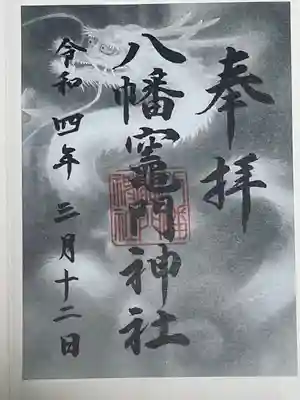 奉拝
八幡竈門神社
令和四年三月十二日